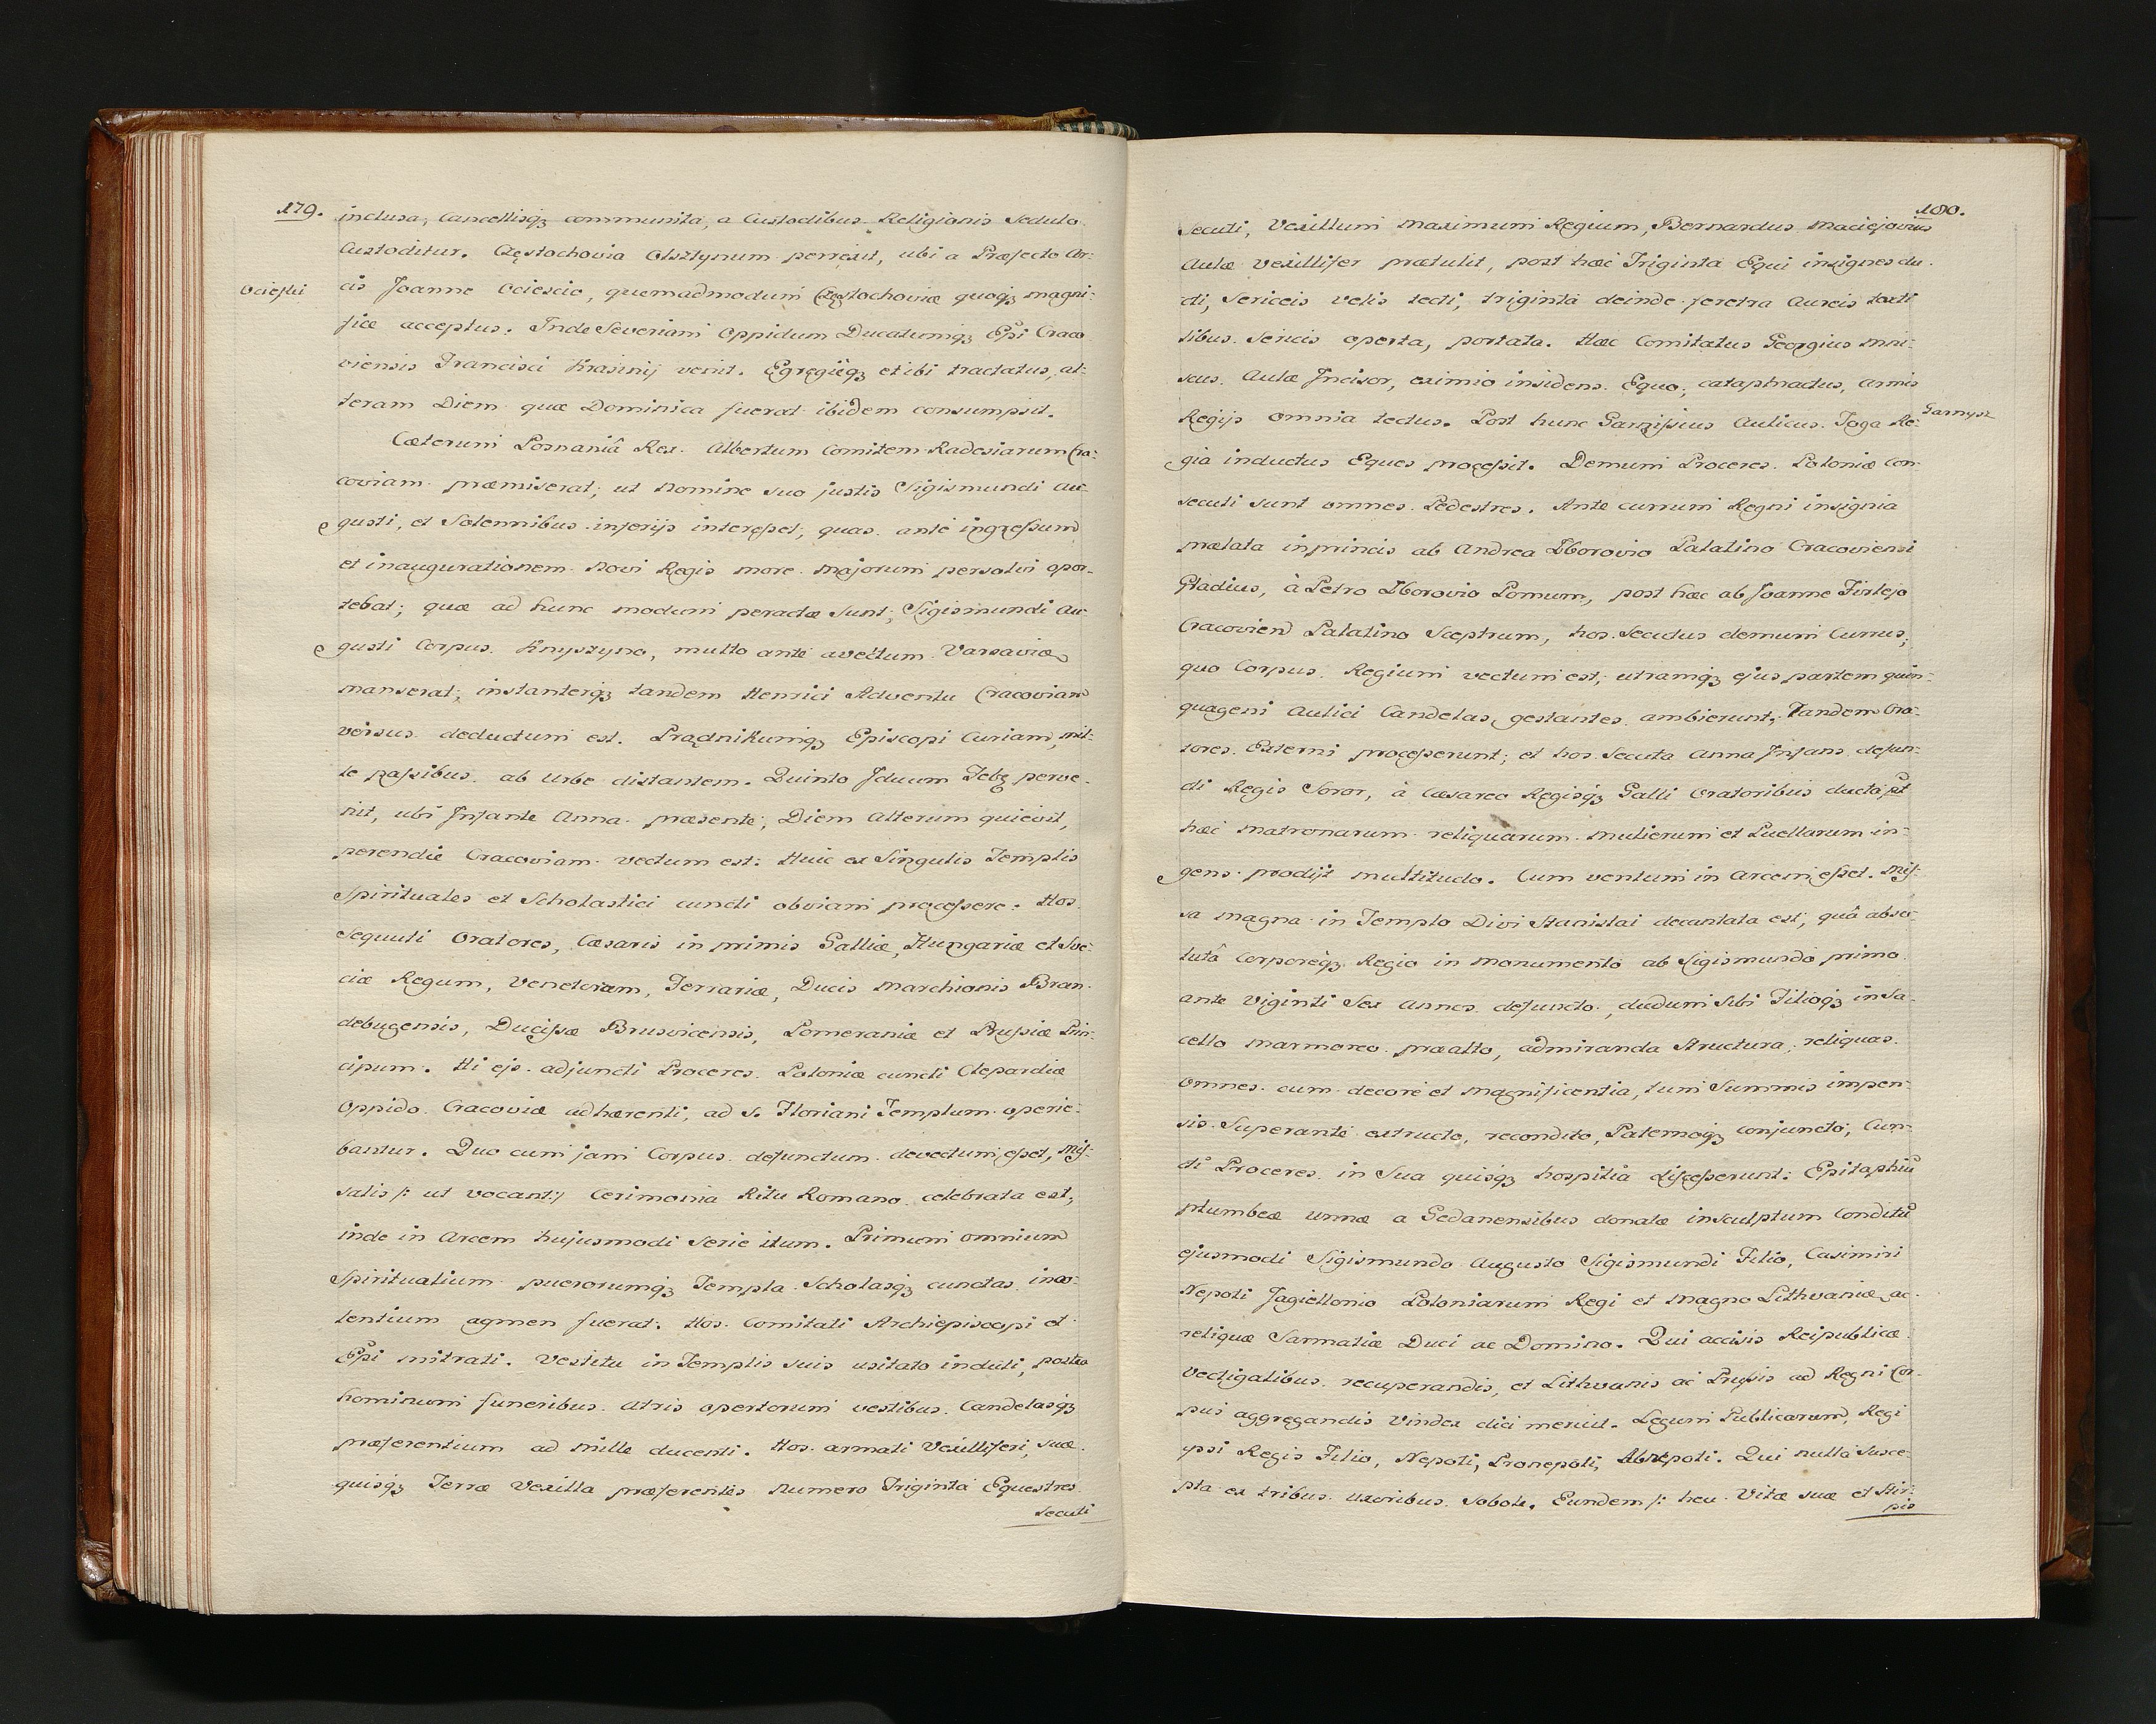 179.
inclusa, Cancellisqȝ communita, a Custodibus Religionis Sedulo
Custoditur. Częstochovia Olsztynum perrexit, ubi a Præfecto Ar:
Ocieski
cis Joanne Ociescio, quemadmodum Częstochoviæ quoqȝ magni:
fice acceptus. Inde Severiam Oppidum Ducatumqȝ Epi Craco
viensis Francisci Krasinij venit. Egregièqȝ et ibi tractatus, al:
teram Diem quæ Dominica fuerat ibidem consumpsit.
Cæterum Posnaniâ Rex Albertum Comitem Radesiarum Cra:
coviam præmiserat; ut Nomine suo justis Sigismundi Au:
gusti, et Solennibus inferijs interesset; quas ante ingressum
et inaugurationem Novi Regis more Majorum persolvi opor:
tebat; quæ ad hunc modum peractæ Sunt; Sigismundi Au:
gusti Corpus Knyszyno, multo ante avectum Varsaviæ
manserat; instanterqȝ tandem Henrici Adventu Cracoviam
versus deductum est. Prądnikumqȝ Episcopi Curiam, mil:
le passibus ab Urbe distantem. Quinto Iduum Febȝ perve:
nit, ubi Infante Anna præsente, Diem Alterum quievit,
perendie Cracoviam vectum est: Huic ex Singulis Templis
Spirituales et Scholastici cuncti obviam processere. Hos
Sequuti Oratores, Cæsaris in primis Galliæ, Hungariæ et Sve:
ciæ Regum, Venetorum, Ferrariæ, Ducis Marchionis Bran:
debugensis, Ducissæ Brusvicensis, Pomeraniæ et Prussiæ Prin:
cipum. Hi ejs adjuncti Proceres Poloniæ cuncti Clepardiæ
Oppido Cracoviæ adhærenti, ad S. Floriani Templum operie:
bantur. Quo cum jam Corpus defunctum devectum esset, Mis:
salis /: ut vocant:/ Cerimonia Ritu Romano celebrata est;
inde in Arcem hujusmodi Serie itum. Primum omnium
Spiritualium puerorumqȝ Templa Scholasqȝ cunctas inco:
lentium agmen fuerat: Hos Comitati Archiepiscopi et
Epi mitrati. Vestitu in Templis suis usitato induti, postea
hominum funeribus atris opertorum vestibus Candelasqȝ
præferentium ad mille ducenti. Hos armati Vexilliferi, suæ
quisqȝ Terræ Vexilla præferentes Numero Triginta Equestres
Secuti
180.
Secuti, Vexillum Maximum Regium, Bernardus Maciejovius
Aulæ Vexillifer prætulit, post hæc Triginta Equi insignes du:
cti, Sericeis velis tecti, triginta deinde feretra Aureis texti
libus Sericis operta, portata. Hæc Comitatus Georgius Mni:
scus Aulæ Incisor, eximio insidens Equo, cataphractus, Armis
Regijs omnia tectus. Post hunc Garnissius Aulicus Toga Re:
Garnysz
gia inductus Eques processit. Demum Proceres Poloniæ con:
secuti sunt omnes Pedestres. Ante currum Regni insignia
prælata inprimis ab Andrea Zborovio Palatino Cracoviensi
Gladius, à Petro Zborovio Pomum, post hæc ab Joanne Firlejo
Cracovien Palatino Sceptrum, hos Secutus demum Currus;
quo Corpus Regium vectum est; utramqȝ ejus partem quin:
quageni Aulici Candelas gestantes ambierunt; Tandem Ora:
tores Externi processerunt; et hos Secuta Anna Infans defun:
cti Regis Soror, à Cæsareo Regisqȝ Galli Oratoribus ducta, pt
hæc Matronarum reliquarum Mulierum et Puellarum in:
gens prodijt multitudo. Cum ventum in Arcem esset. Mis:
sa magna in Templo Divi Stanislai decantata est; quâ abso:
lutâ Corporeqȝ Regio in Monumento ab Sigismundo primo
ante Viginti Sex Annos defuncto, dudum Sibi Filioqȝ in Sa:
cello marmoreo præalto, admiranda Structura; reliquas
omnes cum decore et Magnificentia, tum Summis impen:
sis Superante extructo, recondito, Paternoqȝ conjuncto, Cun:
cti Proceres in Sua quisqȝ hospitia discesserunt: Epitaphiũ
plumbeæ urnæ a Gedanensibus donatæ insculptum Conditũ
ejusmodi Sigismundo Augusto Sigismundi Filio, Casimiri
Nepoti Jagiellonio Poloniarum Regi et Magno Lithvaniæ, ac
reliquæ Sarmatiæ Duci ac Domino. Qui accisis Reipublicæ
Vectigalibus recuperandis, et Lithvanis ac Prussis ad Regni Cor:
pus aggregandis Vindex dici meruit. Legum Publicarum, Regi
psi Regis Filio, Nepoti, Pronepoti, Abnepoti. Qui nulla Susce:
pta ex tribus Uxoribus Sobole. Eundem /: heu Vitæ suæ et Stir:
pis